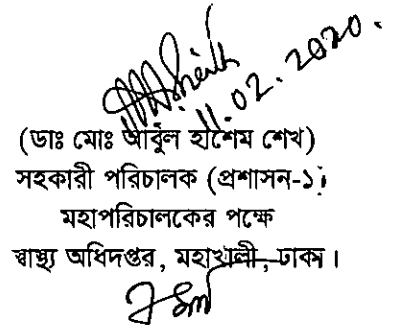 11.02.2020.
(ডাঃ মোঃ আবুল হাশেম শেখ)
সহকারী পরিচালক (প্রশাসন-১)
মহাপরিচালকের পক্ষে
স্বাস্থ্য অধিদপ্তর, মহাখালী, ঢাকা।